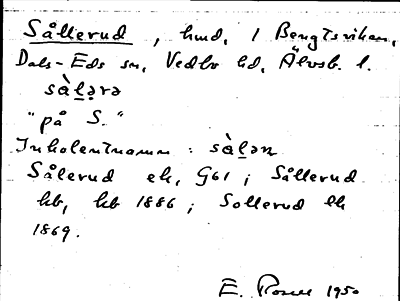 Sållerud, hmd, i Bengtsviken,
Dals-Eds sn, Vedbo hd, Älvsb. l.
sàḷərə
"på S."
Inbolentnamn: sàḷən
Sålerud ek, G61; Sållerud
hb, kb 1886; Sollerud ek
1869.
E. 1950